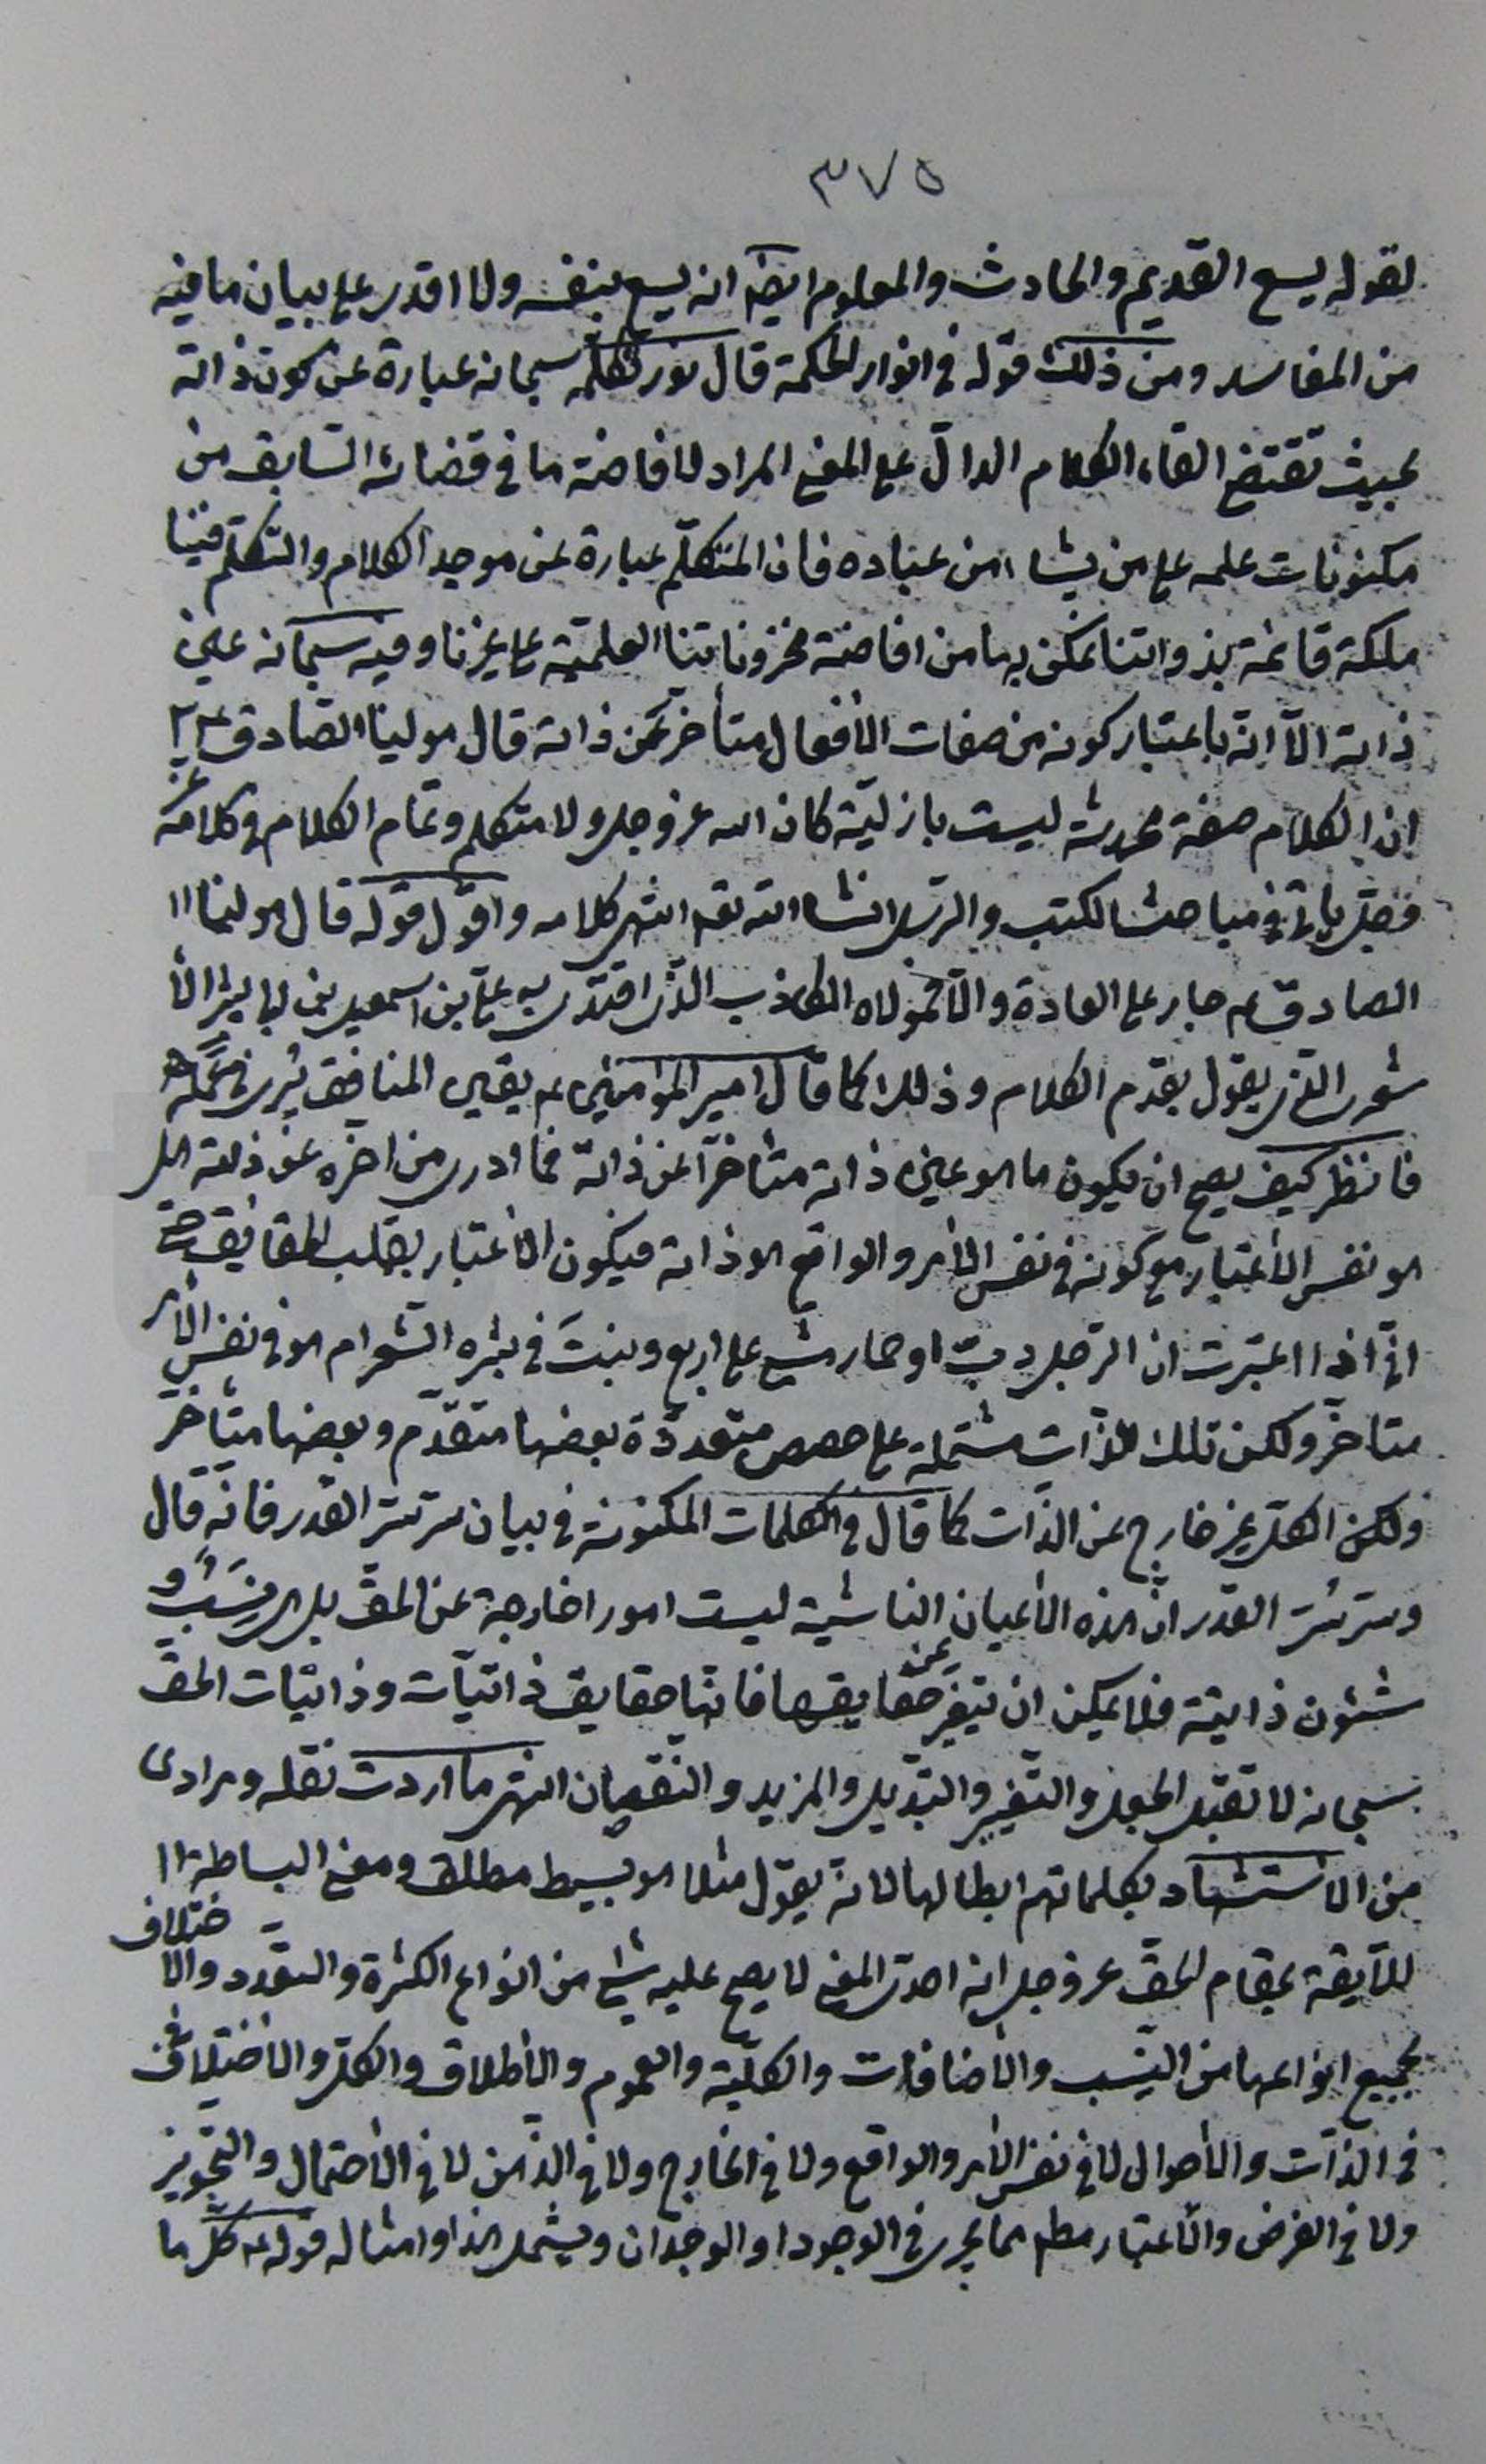 ٣٧٥
لقوله يسع القديم والحادث والمعلوم ايضا انه يسع بنفسه ولا اقدر على بيان ما فيه
من المفاسد ومن ذلك قوله في انوار الحكمة قال نور تكلمه سبحانه عبارة عن كون ذاته
بحيث تقتضي القاء الكلام الدالّ على المعنى المراد لافاضة ما في قضائه السّابق من
مكنونات علمه على من يشاء من عباده فان المتكلّم عبارة عن موجد الكلام والتكلّم فينا
ملكة قائمة بذواتنا نتمكن بها من افاضة مخزوناتنا العلميّة على غيرنا وفيه سبحانه عين
ذاته الّا انّه باعتبار كونه من صفات الأفعال متأخر عن ذاته قال مولينا الصّادق ع
ان الكلام صفة محدثة ليست بازليّة كان الله عزوجل ولا متكلم وتمام الكلام في كلامه
فصل يأتي في مباحث الكتب والرّسل انشاء الله تعـ انتهى كلامه واقول قوله قال مولينا
الصادق ع جار على العادة والّا فمولاه الكاذب الّذي اقتدى به عليّ بن اسمعيل بن ابي بشر الأ
شعري الّذي يقول بقدم الكلام وذلك كما قال امير المؤمنين ع يقين المنافق يُرى في عمله
فانظر كيف يصح ان يكون ما هو عين ذاته متأخراً عن ذاته فما ادري من اخره عن ذاته هل
هو نفس الأعتبار مع كونه في نفس الأمر والواقع هو ذاته فيكون الأعتبار يقلب الحقايق حتى
انّي اذا اعتبرت ان الرّجل دبّ او حمار مشى على اربع وينبت في بشره الشعر ام هو في نفس الأمر
متأخرّ ولكن تلك الذّات مشتملة على حصص متعددّة بعضها متقدّم وبعضها متأخّر
ولكن الكلّ غير خارج عن الذّات كما قال في الكلمات المكنونة في بيان سرّ سرّ القدر فانّه قال
وسرّ سرّ القدر انّ هذه الأعيان الناشية ليست امورا خارجة عن الحقّ بل هي نِسَبٌ و
شئون ذاتيّة فلا يمكن ان يتغيّر عن حقايقها فانّها حقايق ذاتيّات وذاتيّات الحقّ
سبحانه لا تقبل الجعل والتّغيير والتبّديل والمزيد والنّقصان انتهى ما اردت نقله ومرادى
من الاستشهاد بكلماتهم ابطالها لانّه يقول مثلا هو بسيط مطلق ومعنى البساطة
اللّايقة بمقام الحقّ عزوجل انه احدي المعنى لا يصح عليه شيء من انواع الكثرة والتعّدد والاختلاف
بجميع انواعها من النّسب والأضافات والكلّيّة والعموم والأطلاق والكلّ والأختلاف
في الذّات والأحوال لا في نفس الأمر والواقع ولا في الخارج ولا في الذّهن لا في الأحتمال والتّجويز
ولا في الفرض والأعتبار مطـ مما يجرى في الوجود او الوجدان ويشمل هذا وامثاله قوله ع كلّ ما